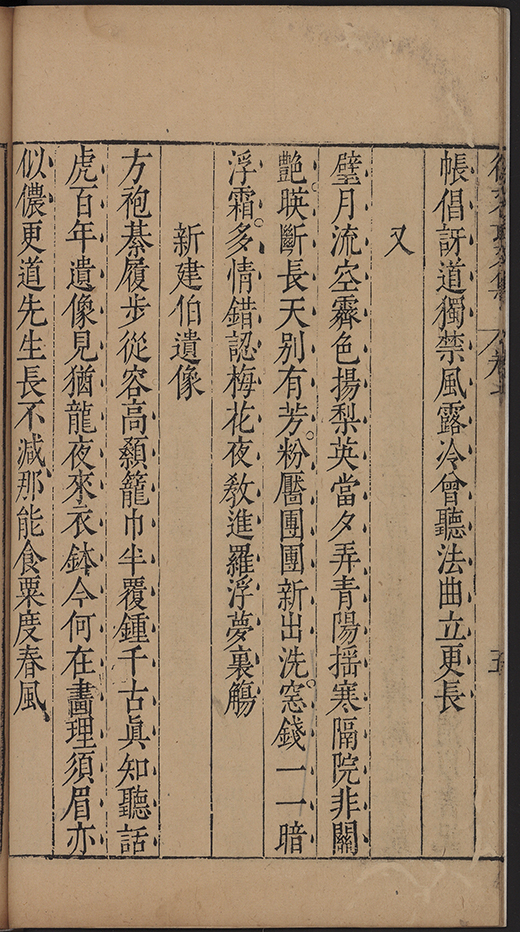 帳倡訝道獨禁風露冷曾聽法曲立更長
又
璧月流空霽色揚梨英當夕弄青陽揺寒隔院非關
艷暎斷長天别有芳粉靨團團新出洗窓錢一一暗
浮霜多情錯認梅花夜教進羅浮夢裏觴
新建伯遺像
方袍綦履步從容高顙籠巾半覆鍾千古眞知聽話
虎百年遺像見猶龍夜來衣鉢今何在畫理須眉亦
似儂更道先生長不减那能食粟度春風